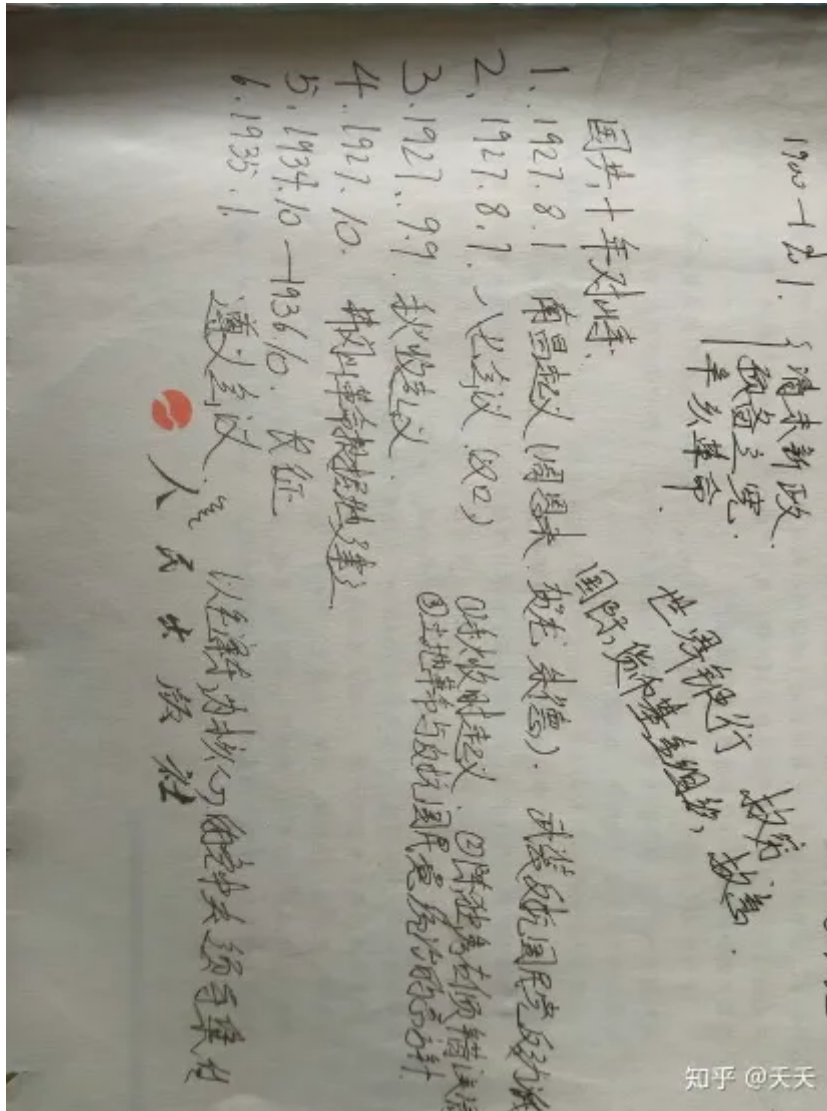 1900—1901.
清末新政
预备立宪.
辛亥革命.
世界银行 救穷
国际货币基金组织, 救急.
国共十年对峙、
1. 1927.8.1 南昌起义(周恩来、贺龙、朱德). 武装反抗国民党反动派
2、1927.8.7. 八七会议 (汉口)
①秋收起义、②陈独秀右倾错误
③土地革命与反抗国民党统治的方针
3. 1927.9.9. 秋收起义.
4. 1927.10. 井冈山革命根据地建立.
5. 1934.10—1936.10. 长征
6. 1935.1. 遵义会议. 以毛泽东为核心的党中央领导集体
人民出版社
知乎 @天天